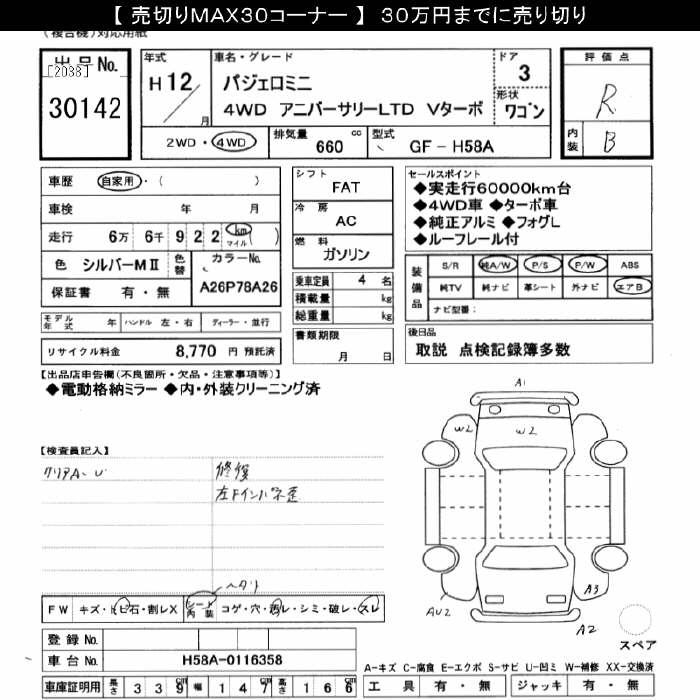 【 売切りMAX30コーナー 】 30万円までに売り切り
(複合機)対応用紙
出品No.
[2038]
30142
年式
H12/
月
車名・グレード
パジェロミニ
4WD アニバーサリーLTD Vターボ
ドア
3
形状
ワゴン
2WD・4WD
排気量
660 cc
型式
GF-H58A
評価点
R
内装
B
車歴 自家用・( )
車検 年 月
走行 6万 6千 9 2 2 km マイル ( )
色 シルバーMⅡ
色替
カラーNo.
A26P78A26
保証書 有・無
モデル年式 年 ハンドル 左・右 ディーラー・並行
リサイクル料金 8,770 円 預託済
シフト
FAT
冷房
AC
燃料
ガソリン
乗車定員 4 名
積載量 kg
総重量 kg
書類期限
月 日
セールスポイント
◆実走行60000km台
◆4WD車 ◆ターボ車
◆純正アルミ ◆フォグL
◆ルーフレール付
装備品
S/R 純A/W P/S P/W ABS
純TV 純ナビ 革シート 外ナビ エアB
ナビ型番:
後日品
取説 点検記録簿多数
【出品店申告欄(不良箇所・欠品・注意事項等)】
◆電動格納ミラー ◆内・外装クリーニング済
【検査員記入】
クリアA-U
修復
左Fインパネ歪
ヘタリ
FW キズ・ヒビ石・割レX
シート内装 コゲ・穴・汚レ・シミ・破レ・スレ
登録No.
車台No. H58A-0116358
車庫証明用 長さ 3 3 9 cm 幅 1 4 7 cm 高さ 1 6 6 cm
A1
W2
W2
AU2
A3
A2
スペア
A-キズ C-腐食 E-エクボ S-サビ U-凹ミ W-補修 XX-交換済
工具 有・無 ジャッキ 有・無